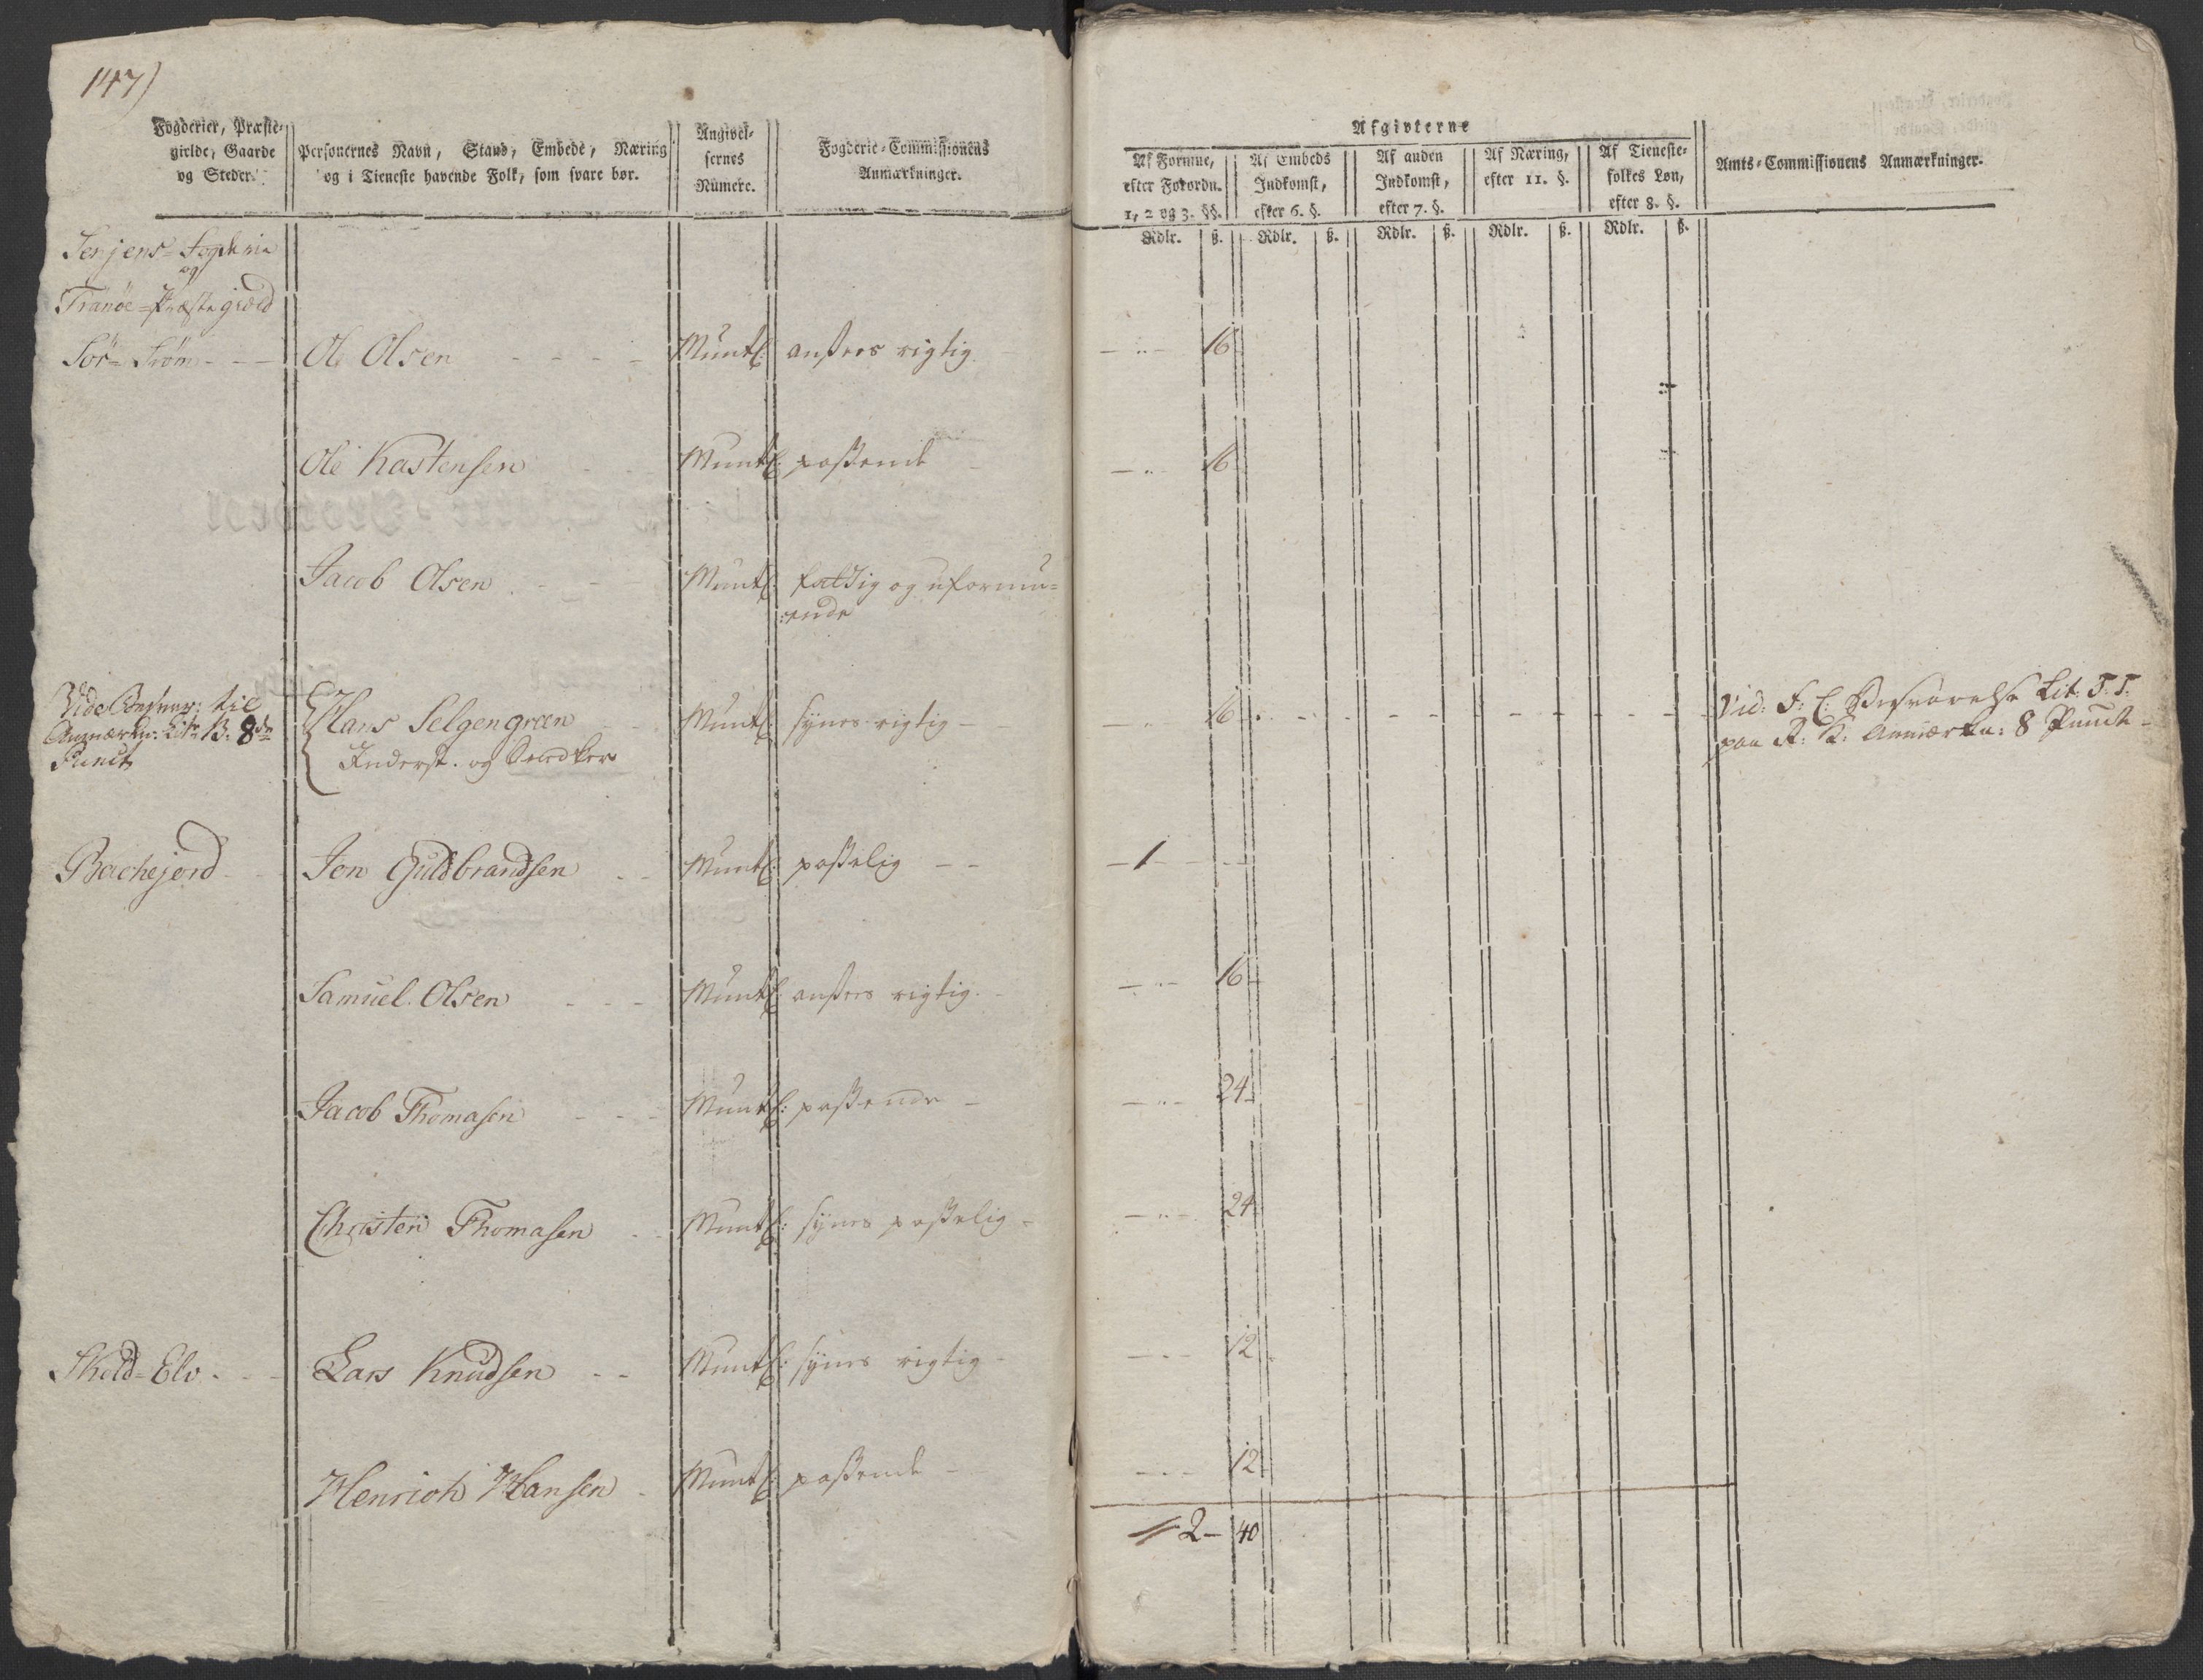 147)
Fogderier, Præste-
gielde, Gaarde
og Steder.
Personernes Navn, Stand, Embede, Næring
og i Tieneste havende Folk, som svare bør.
Angivel-
sernes
Numere.
Fogderie-Commissionens
Anmærkninger.
Afgivterne
Af Formue,
efter Forordn.
1, 2 og 3. §§.
Af Embeds
Indkomst,
efter 6. §.
Af anden
Indkomst,
efter 7. §.
Af Næring,
efter 11. §.
Af Tieneste-
folkes Løn,
efter 8. §.
Amts-Commissionens Anmærkninger.
Rdlr. ß. Rdlr. ß. Rdlr. ß. Rdlr. ß. Rdlr. ß.
Senjens-Fogderie
og
Tranöe-Præstegield
Sör- - - - Ole Olsen - - - - Muntl: ansees rigtig. - - " - 16
Ole Kastensen - - Muntl: passende - - " - 16
Jacob Olsen - - - Muntl: fattig og uformu-
ende
Vide til
Anmærkn: Litr: B. 8de
Punct
Hans Selgengreen - - Muntl: synes rigtig - - " - 16
Inderst. og
Vid: F: C: Besvarelse Lit. T.T.
paa R: K: Anmærkn: 8 Punct -
Bachejord - - Jon Guldbrandsen - - Muntl: passelig - - - 1 - - -
Samuel Olsen - - - Muntl: ansees rigtig. - - " - 16
Jacob Thomasen - - - Muntl: passende - - " - 24
Christen Thomasen - - Muntl: synes passelig - - " - 24
Skold-Elv. - - Lars Knudsen - - Muntl: synes rigtig - - - - 12
Henrich Hansen - Muntl: passende - - - - 12
2 - 40